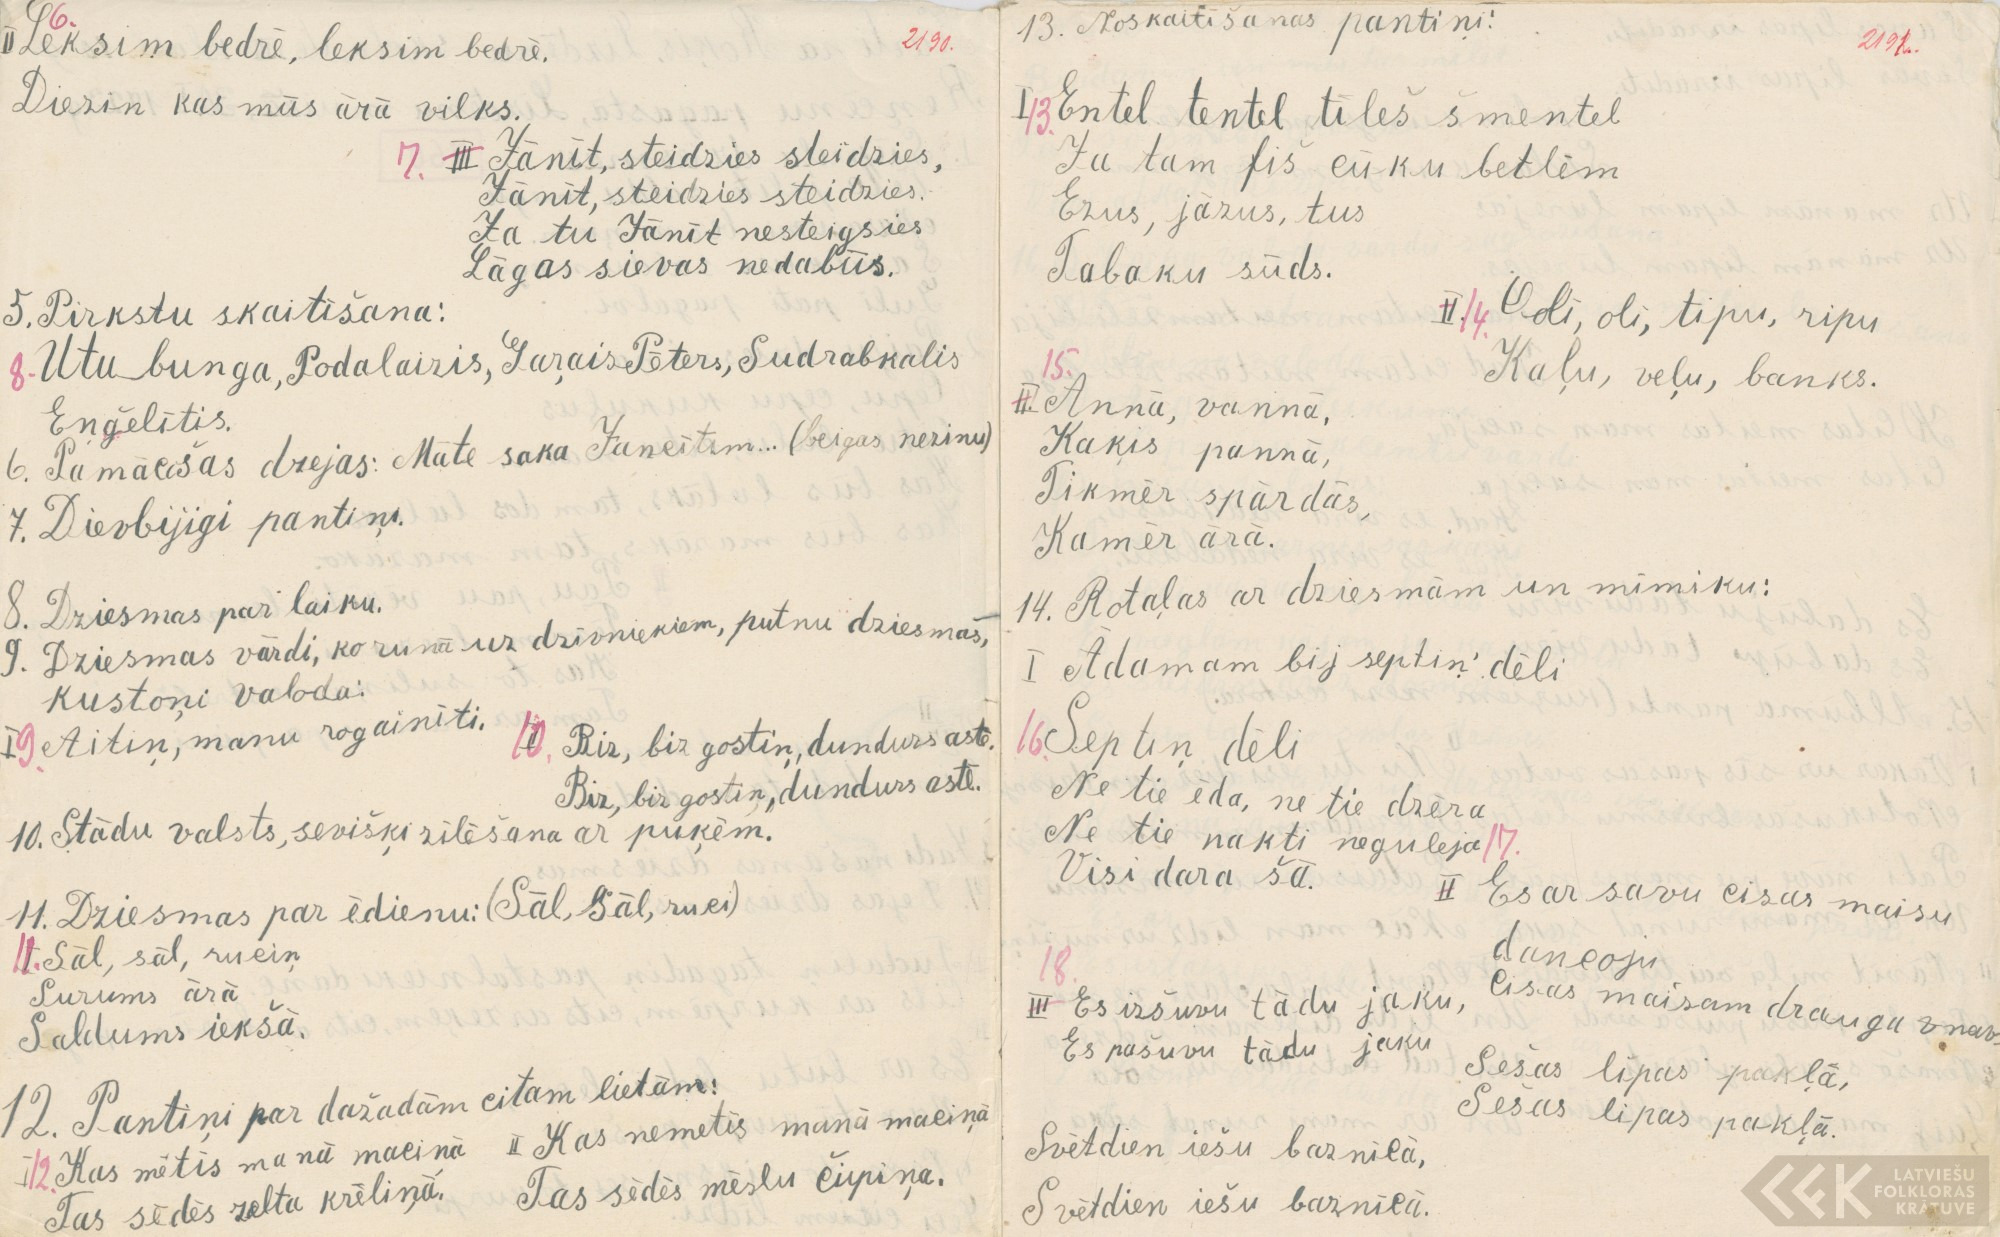 6.
II Leksim bedrē, leksim bedrē.
2190.
Diezin kas mūs ārā vilks.
7. III Jānīt, steidzies steidzies,
Jānīt, steidzies steidzies.
Ja tu Jānīt nesteigsies
Lāgas sievas nedabūs.
5. Pirkstu skaitīšana:
8. Utu bunga, Podalaizis, Gaŗais Pēters, Sudrabkalis
Eņģelītis.
6. Pamācošas dzejas: Māte saka Janeitim... (beigas nezinu)
7. Dievbijīgi pantiņi.
8. Dziesmas par laiku.
9. Dziesmas vārdi, ko runā uz dzīvniekiem, putnu dziesmas,
kustoņi valoda:
I 9. Aitiņ, manu rogainīti.
10. II Biz, biz gostiņ, dundurs astē.
Biz, biz gostiņ, dundurs astē.
10. Stādu valsts, sevišķi zīlēšana ar puķēm.
11. Dziesmas par ēdienu: (Sāl, sāl, ruci)
11. I. Sāl, sāl, ruciņ
Surums ārā
Saldums iekšā.
12. Pantiņi par dažadām citam lietām:
I 12. Kas mētīs manā maciņā
Tas sēdēs zelta krēliņā.
II Kas nemetīs manā maciņā
Tas sēdēs mēslu čupiņa.
13. Noskaitīšanas pantiņi:
2191.
I 13. Entel tentel tīleš šmentel
Ja tam fiš cūku betlēm
Ezus, jāzus, tus
Tabaku sūds.
II. 14. Odi, oli, tipu, ripu
Kaļu, veļu, banks.
15.
II. Annā, vannā,
Kaķis pannā,
Tikmēr spārdās,
Kamēr ārā.
14. Rotaļas ar dziesmām un mīmiku:
I Ādamam bij septiņ' dēli
16. Septiņ dēli
Ne tie ēda, ne tie dzēra
Ne tie nakti neguleja
Visi dara šā.
17.
II Es ar savu cisas maisu
dancoju
Cisas maisam drauga vnav.
18.
III Es izšuvu tādu jaku,
Es pašuvu tādu jaku
Sešas lipas pakļā,
Sešas lipas pakļā.
Svētdien iešu baznīcā,
Svētdien iešu baznīcā.
LATVIEŠU
FOLKLORAS
KRĀTUVE